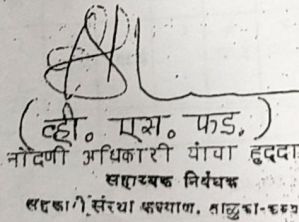 ( व्ही. एस. फड. )
नोंदणी अधिकारी यांचा हुद्दा
सहाय्यक निबंधक
सहकारी संस्था कल्याण, तालुका-कल्य